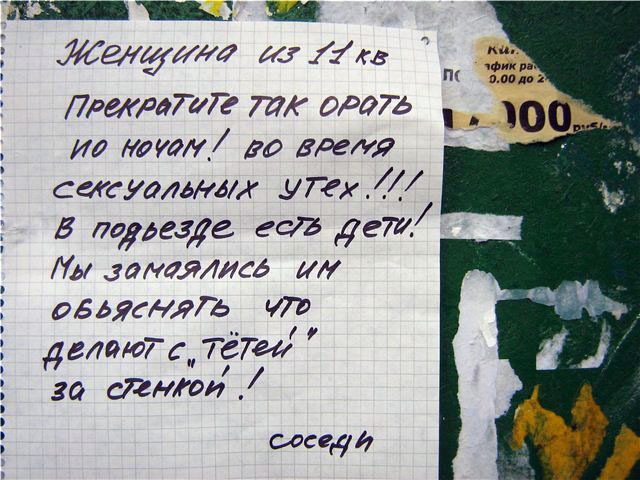 Женщина из 11 кв
Прекратите так орать
по ночам! во время
сексуальных утех!!!
В подьезде есть дети!
Мы замаялись им
обьяснять что
делают с „тётей"
за стенкой!
соседи
0.00 до 2
000